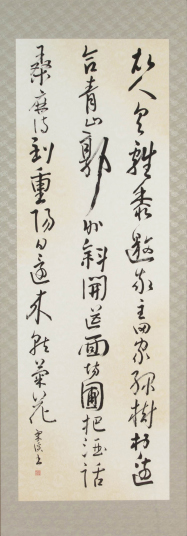 故人具雞黍邀我至田家綠樹村邊
合青山郭外斜開筵面場圃把酒話
桑麻待到重陽日還來就菊花